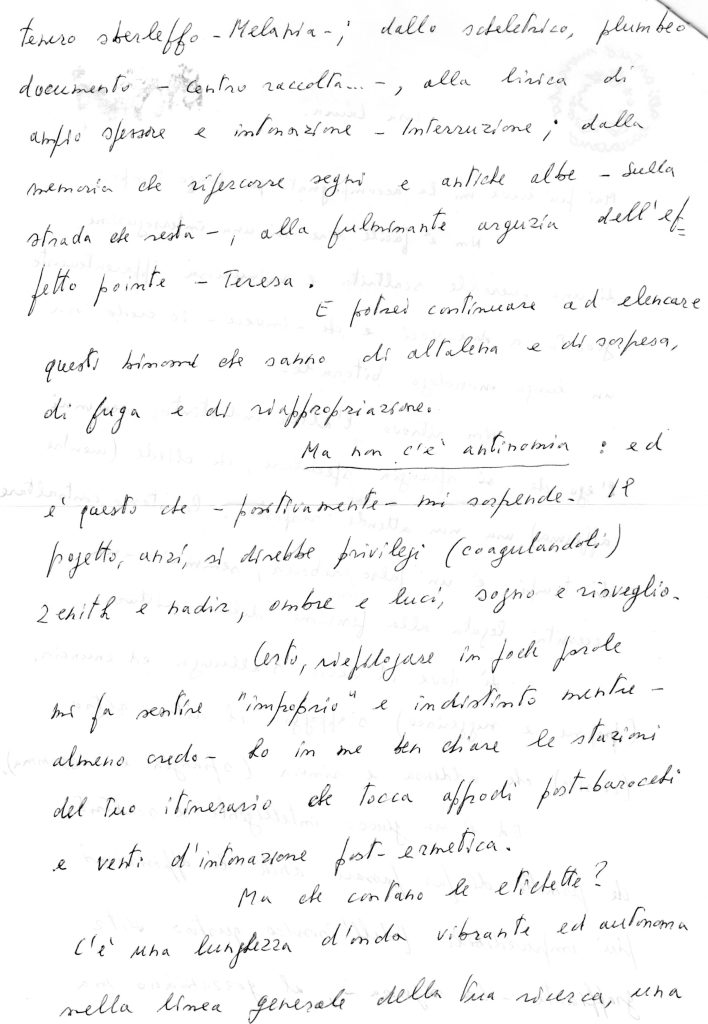 tenero sberleffo - Melania -; dallo scheletrico, plumbeo
documento - Centro raccolta... -, alla lirica di
ampio spessore e intonazione - Interruzione; dalla
memoria che ripercorre segni e antiche albe - Sulla
strada che resta -, alla fulminante arguzia dell'ef=
fetto pointe - Teresa.
E potrei continuare ad elencare
questi binomi che sanno di altalena e di sorpresa,
di fuga e di riappropriazione.
Ma non c'è antinomia : ed
è questo che - positivamente - mi sorprende. Il
progetto, anzi, si direbbe privilegi (coagulandoli)
zenith e nadir, ombre e luci, sogno e risveglio.
Certo, riepilogare in poche parole
mi fa sentire "improprio" e indistinto mentre -
almeno credo - ho in me ben chiare le stazioni
del tuo itinerario che tocca approdi post-barocchi
e venti d'intonazione post-ermetica.
Ma che contano le etichette?
C'è una lunghezza d'onda vibrante ed autonoma
nella linea generale della tua ricerca, una